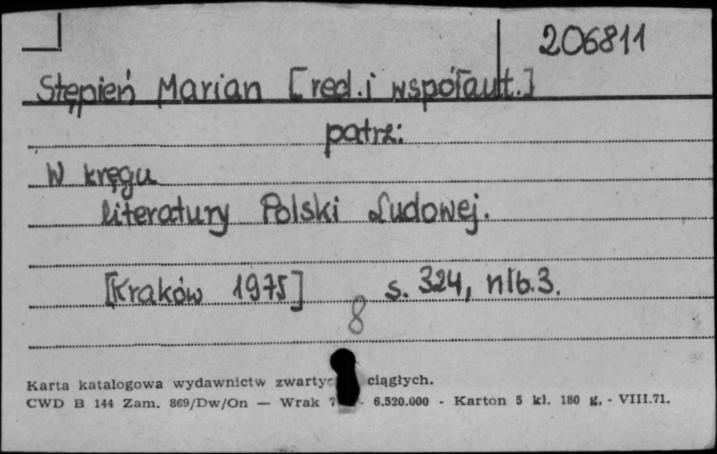 206811
Stępień Marian [red. i współaut.]
patrz:
W kręgu
literatury Polski Ludowej.
[Kraków 1975] s. 324, nlb. 3.
8
Karta katalogowa wydawnictw ciągłych.
CWD B 144 Zam. 869/Dw/On — Wrak 6.520.000 - Karton 5 kl. 180 g. - VIII.71.